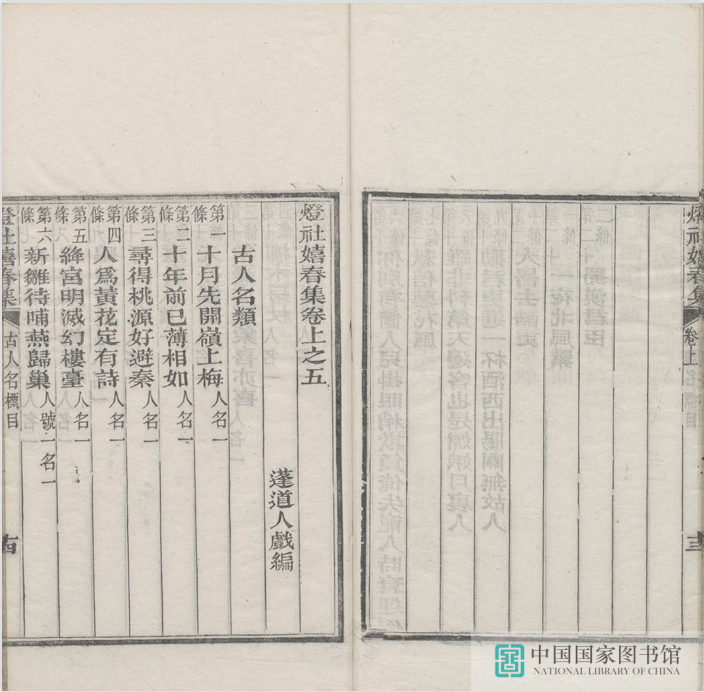 燈社嬉春集卷上之五
蓬道人戲編
古人名類
第一條 十月先開嶺上梅 人名一
第二條 十年前已薄相如 人名一
第三條 尋得桃源好避秦 人名一
第四條 人爲黃花定有詩 人名一
第五條 絳宮明滅幻樓臺 人名一
第六條 新雛待哺燕歸巢 人號一名一
燈社嬉春集 古人名標目
卷上
中国国家图书馆
NATIONAL LIBRARY OF CHINA